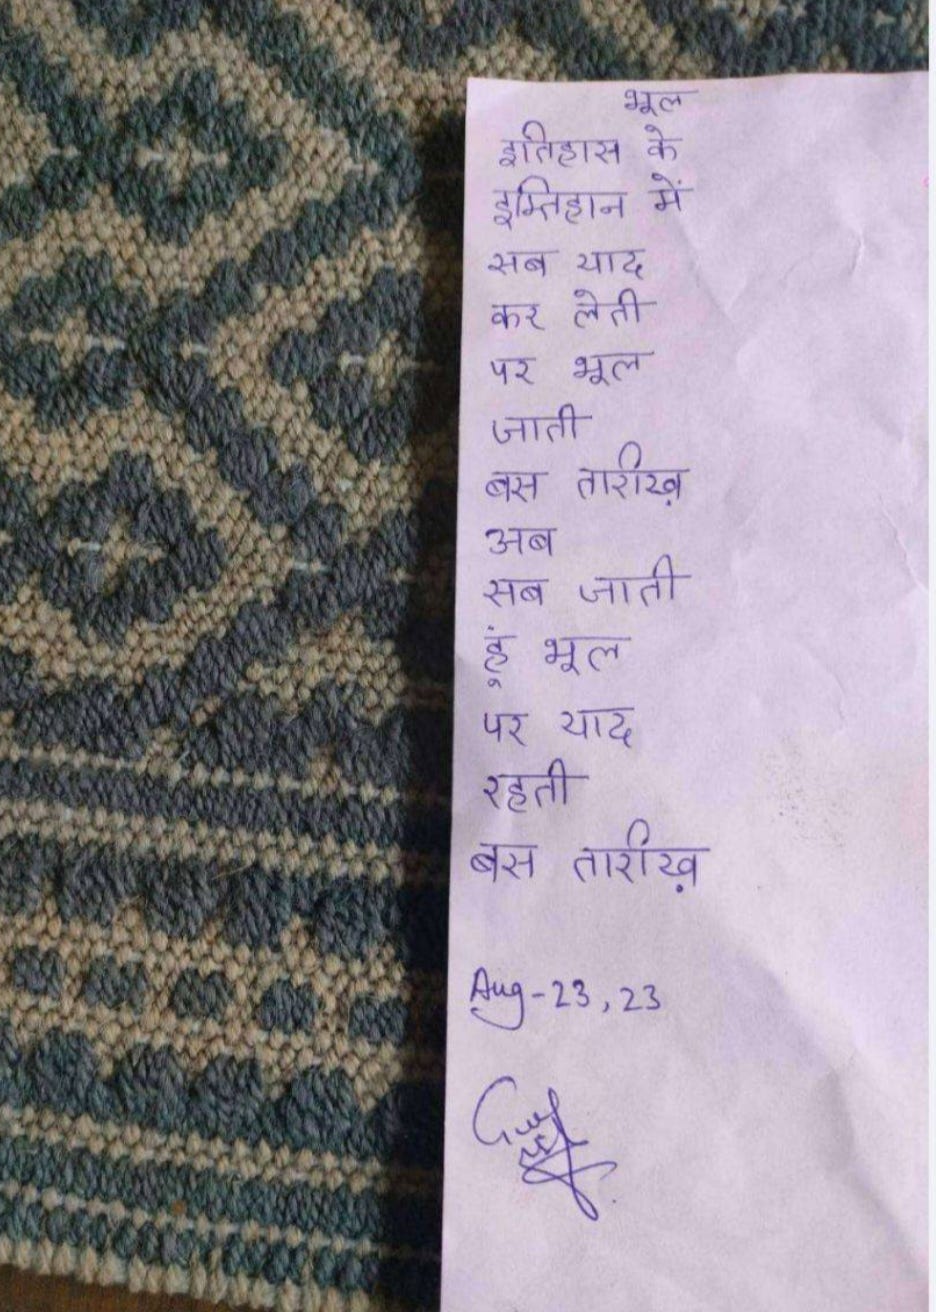 भूल
इतिहास के
इम्तिहान में
सब याद
कर लेती
पर भूल
जाती
बस तारीख़
अब
सब जाती
हूं भूल
पर याद
रहती
बस तारीख़
Aug-23, 23